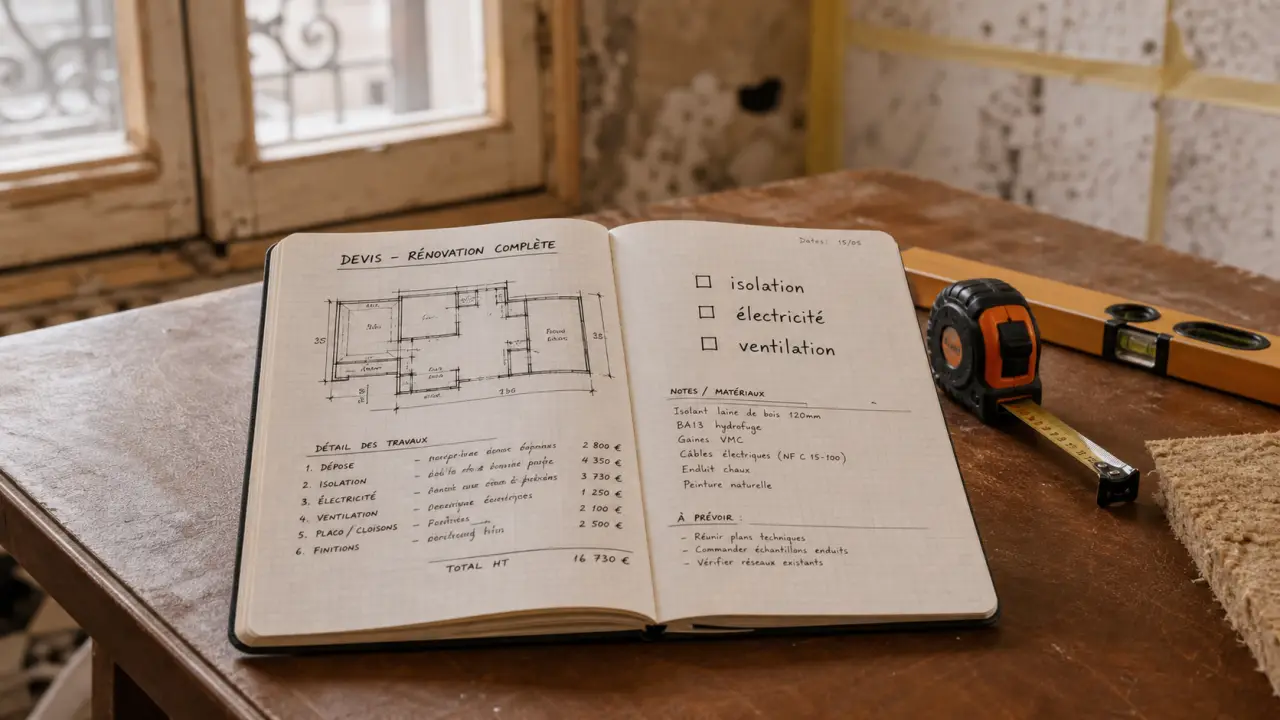 DEVIS – RÉNOVATION COMPLÈTE
35
35
DÉTAIL DES TRAVAUX
1. DÉPOSE 2 800 €
2. ISOLATION 4 350 €
3. ÉLECTRICITÉ 3 730 €
4. VENTILATION 1 250 €
5. PLACO / CLOISONS 2 100 €
6. FINITIONS 2 500 €
TOTAL HT 16 730 €
Dates: 15/05
☐ isolation
☐ électricité
☐ ventilation
NOTES / MATÉRIAUX
Isolant laine de bois 120mm
BA13 hydrofuge
Gaines VMC
Câbles électriques (NF C 15-100)
Enduit chaux
Peinture naturelle
À PRÉVOIR :
– Réunir plans techniques
– Commander échantillons enduits
– Vérifier réseaux existants